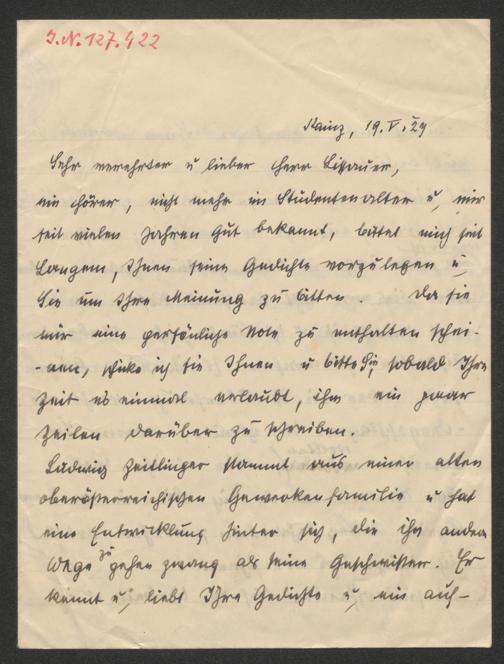 I.N. 127.422
Kainz, 19.V.29
Sehr verehrter u lieber Herr Lissauer,
ein Hörer, nicht mehr im Studentenalter u, mir
seit vielen Jahren gut bekannt, bittet mich seit
Langem, Ihnen seine Gedichte vorzulegen u,
Sie um Ihre Meinung zu bitten. Da sie
mir eine persönliche Note zu enthalten schei-
-nen, schicke ich sie Ihnen u bitte Sie, sobald Ihre
Zeit es einmal erlaubt, ihm ein paar
Zeilen darüber zu schreiben.
Ludwig Zeitlinger stammt aus einer alten
oberösterreichischen Gewerkenfamilie u hat
eine Entwicklung hinter sich, die ihn andere
Wege zu gehen zwang als seine Geschwister. Er
kennt u, liebt Ihre Gedichte u, ein auf-